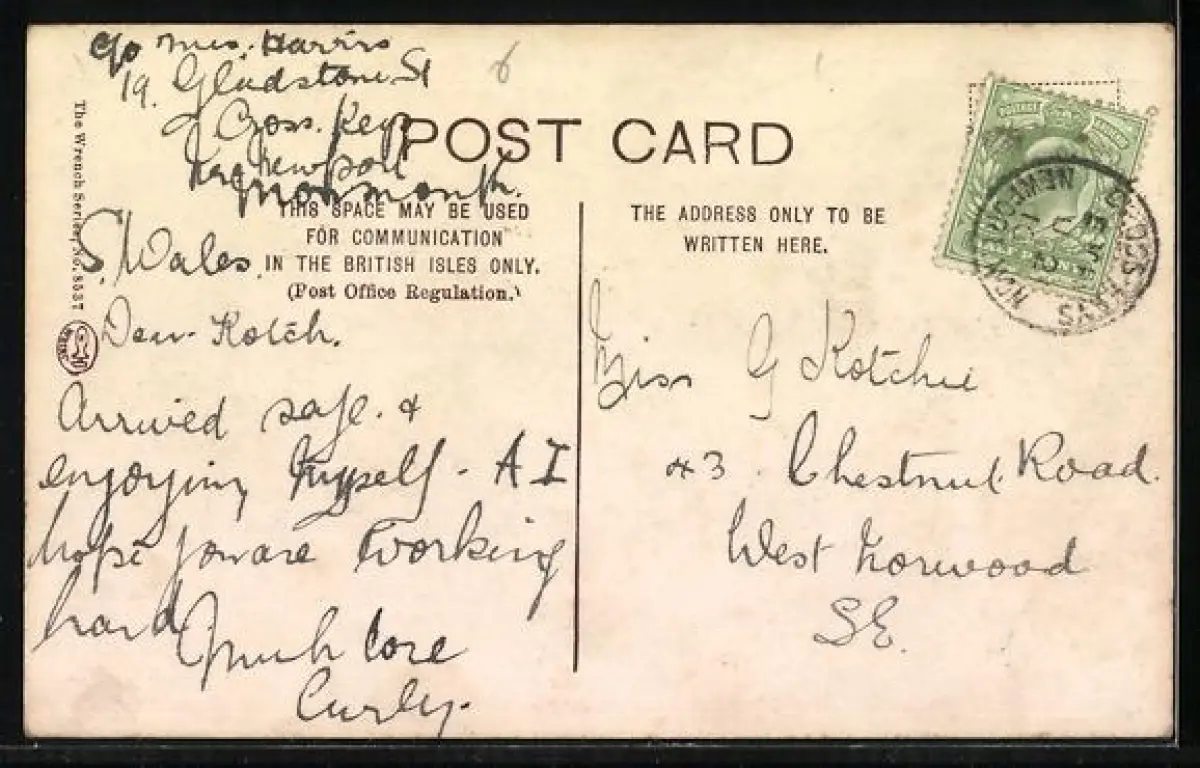 c/o Mrs. Harris
19. Gladstone St
Cross. Keys
Newport
Monmouth.
S. Wales.
POST CARD
THIS SPACE MAY BE USED
FOR COMMUNICATION
IN THE BRITISH ISLES ONLY.
(Post Office Regulation.)
The Wrench Series, No. 8537
Dear Kotch.
Arrived safe. &
enjoying myself - A I
hope you are working
hard
Much love
Curly.
THE ADDRESS ONLY TO BE
WRITTEN HERE.
Miss G Kotchie
43. Chestnut Road.
West Norwood
S.E.
CROSS KEYS